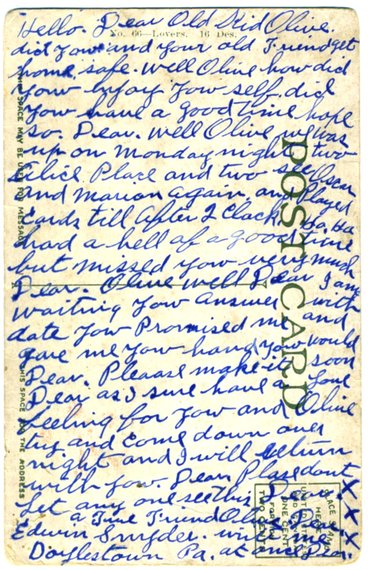 Hello. Dear Old Kid Olive.
No. 66—Lovers. 16 Des.
did you and your old Friend get
home safe. Well Olive how did
your enjoy your self. did
you have a good time hope
so. Dear. Well Olive we was
up on Monday night two
Alice Place and two
and Marion again and Played
Cards till After 2 Clock. Ha, Ha
had a hell of a good time
but missed you very much
Dear. Olive well Dear I am
waiting your Answer with
date you Promised me and
gave me your hand you would
Dear. Please make it soon
Dear as I sure have a
feeling for you and Olive
try and Come down over
night and I will return
with you. Dear Please dont
let any one see this Dear. X
a True Friend
Edwin Snyder.
Doylestown Pa. at
X X X
POST CARD
THIS SPACE MAY BE USED FOR MESSAGE
THIS SPACE FOR THE ADDRESS
PLACE STAMP
HERE
ONE CENT
FOREIGN
TWO CENTS